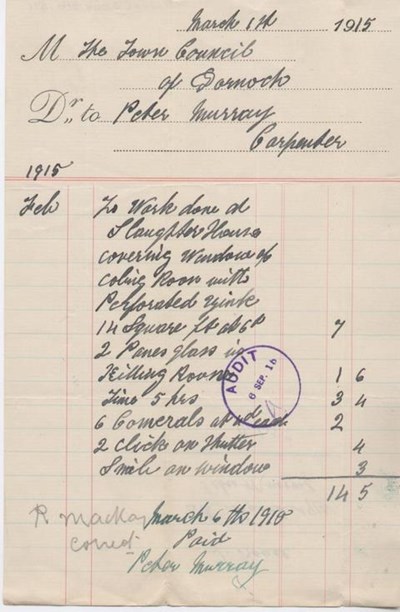 March 1st 1915
M The Town Council
of Dornoch
Dr. to Peter Murray
Carpenter
1915
Feb To Work done at
Slaughter House
covering Window of
Coling Room with
Perforated Zink
14 Square ft at 6d 7
2 Panes glass in
Killing Room 1 6
Time 5 hrs 3 4
6 at 4d each 2
2 Click on Shutter 4
on window 3
14 5
AUDIT
8 SEP. 16
R Mackay March 6th 1915
Correct Paid
Peter Murray